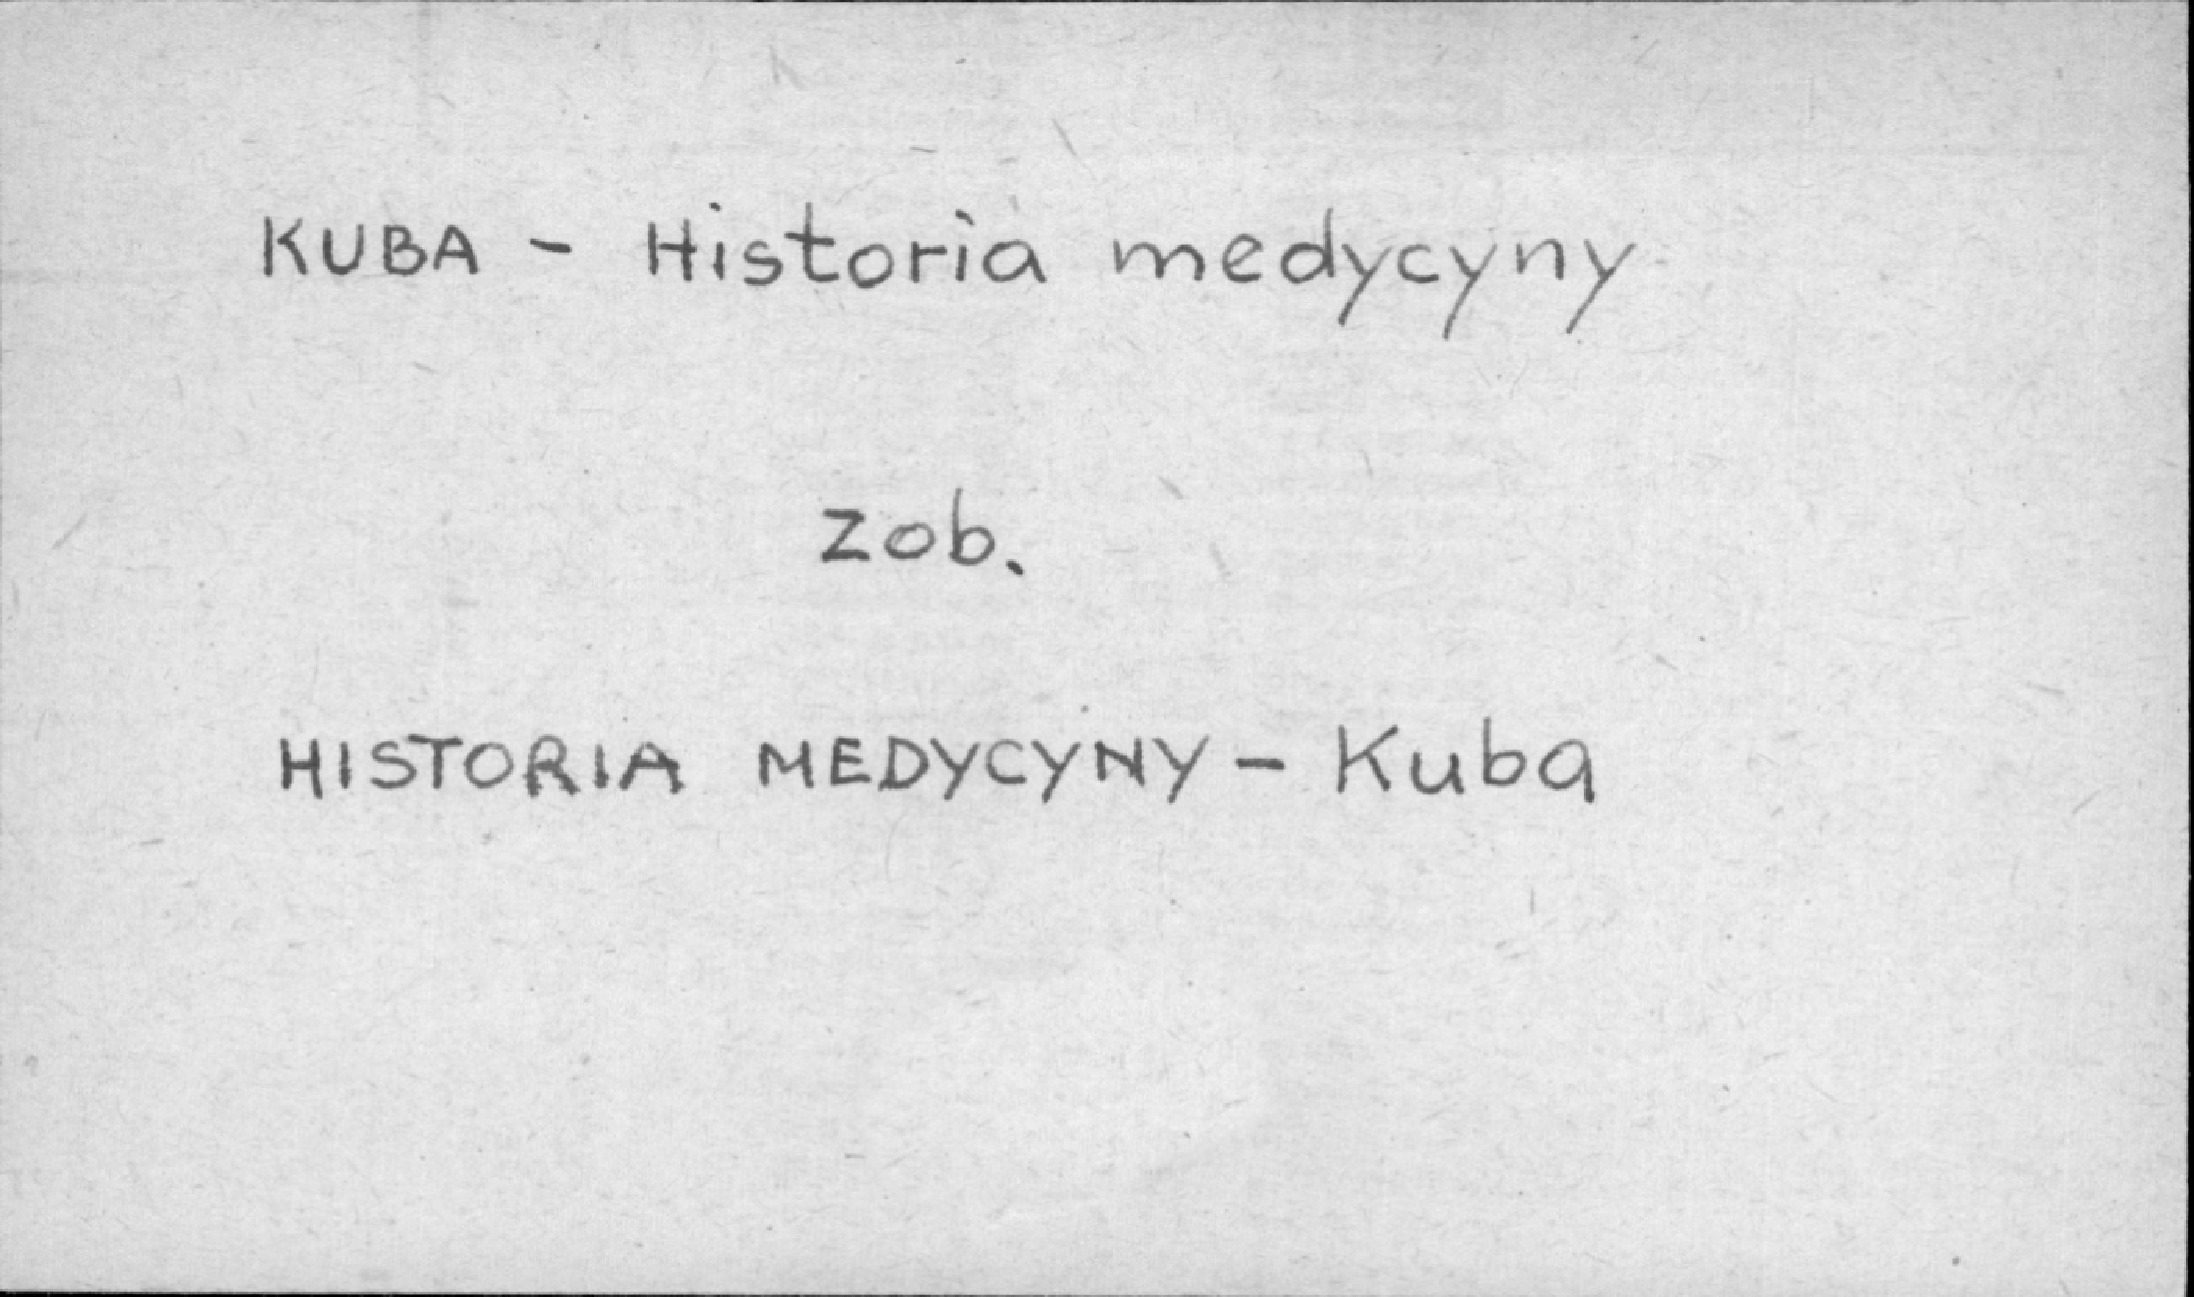 KUBA - Historia medycyny
zob.
HISTORIA MEDYCYNY - Kuba